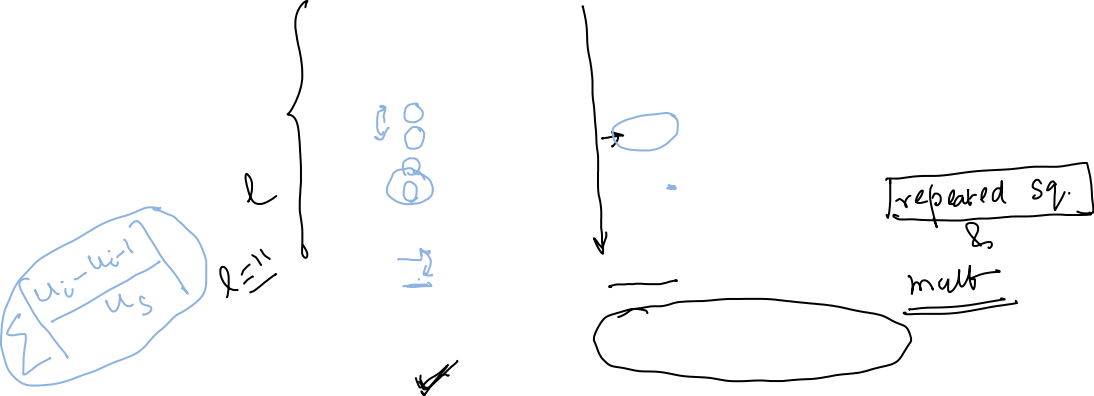 l
l = 11
∑ | (u_i - u_{i-1}) / u_s |
repeated sq.
&
mult